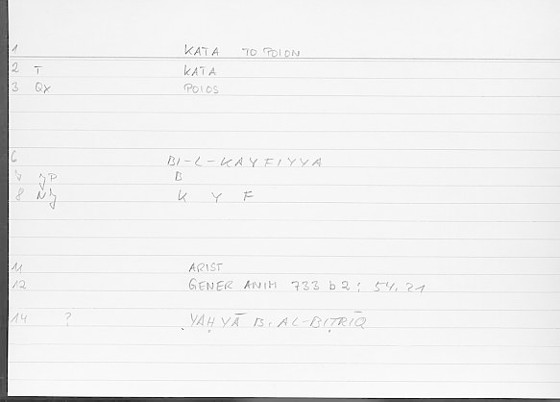 1 KATA TO POION
2 T KATA
3 Qx POIOS
6 BI-L-KAYFIYYA
B
8 Nj K Y F
11 ARIST
12 GENER ANIM 733 b 2 : 54, 21
14 ? YAḤYĀ B. AL-BIṬRĪQ